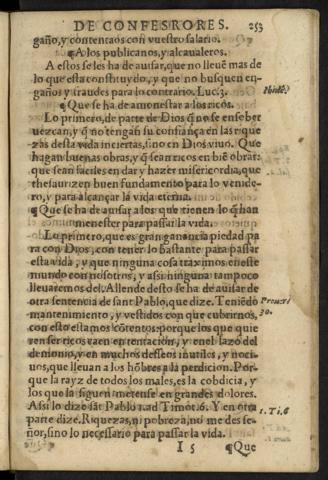 DE CONFESRORES. 253
gaño, y contentaos con vuestro salario.
¶A los publicanos, y alcaualeros.
A estos se les ha de auisar, que no lleuẽ mas de
lo que esta constituydo, y que no busquen en-
gaños y fraudes para lo contrario. Luc. 3. Ibidẽ.
¶Que se ha de amonestar a los ricos.
Lo primero, de parte de Dios q̃ no se ensober
uezcan, y q̃ no tengan su confiança en las rique
zas desta vida inciertas, sino en Dios viuo. Que
hagan buenas obras, y q̃ sean ricos en biẽ obrar:
que sean faciles en dar y hazer misericordia, que
thesaurizen buen fundamento para lo venide-
ro, y para alcançar la vida eterna.
¶Que se ha de auisar a los que tienen lo q̃ han
menester para passar la vida.
Lo primero, que es gran ganancia piedad pa
ra con Dios, con tener lo bastante para passar
esta vida, y que ninguna cosa traximos en este
mundo con nosotros, y assi ninguna tampoco
lleuaremos del. Allende desto se ha de auisar de
otra sentencia de sant Pablo, que dize. Teniẽdo Prou.
mantenimiento, y vestidos con que cubrirnos, 30.
con esto estamos cõtentos: porque los que quie
ren ser ricos caen en tentacion, y en el lazo del
demonio, y en muchos desseos inutiles, y noci-
uos, que lleuan a los hõbres a la perdicion. Por-
que la rayz de todos los males, es la cobdicia, y
los que la siguen metense en grandes dolores.
Assi lo dize sãt Pablo 1. ad Timot. 6. Y en otra 1. Ti. 6
parte dize. Riquezas, ni pobreza, no me des se-
ñor, sino lo necessario para passar la vida.
I 5 ¶Que